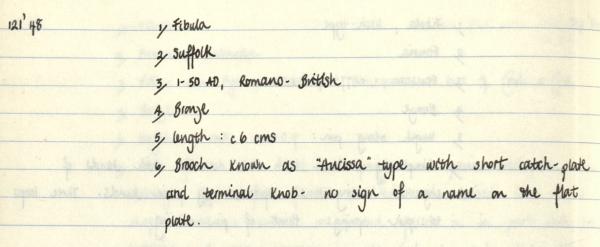 121'48 1, Fibula
2, Suffolk
3, 1-50 AD, Romano-British
4, Bronze
5, length : c 6 cms
6, Brooch known as "Aucissa" type with short catch-plate
and terminal knob - no sign of a name on the flat
plate.